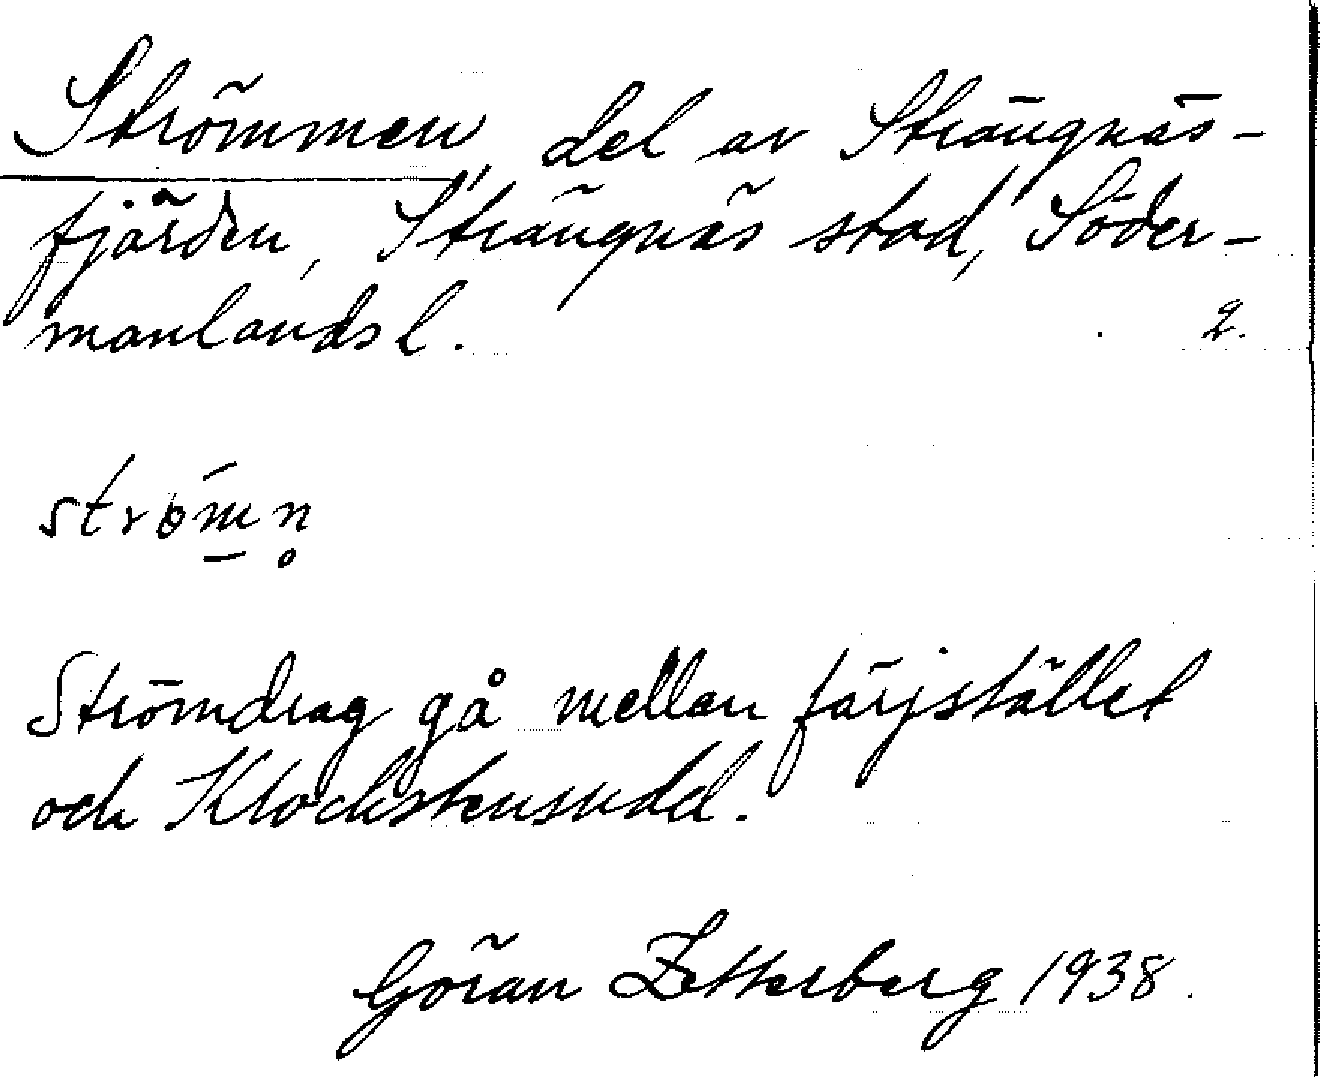 Strömmen, del av Strängnäs-
fjärden, Strängnäs stad, Söder-
manlands l. 2.
strö́m̲n̥
Strömdrag gå mellan färjstället
och Klockstensudd.
Göran Zetterberg 1938.